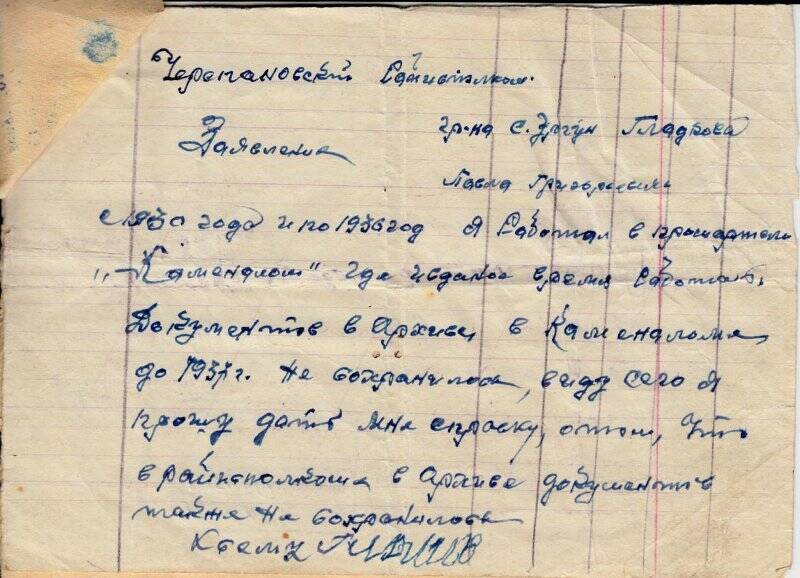 Черепановский Райисполком.
гр-на с. Ургун Гладкова
Заявление
Павла Григорьевича
с 1930 года и по 1936 год я работал в
"Каменалом" где и в даное время работаю.
Документов в архиве, в Каменаломе
до 1937 г. не сохранилось, в виду сего я
прошу дать мне справку, о том, что
в райисполкоме в архиве документов
также не сохранилось
К сему